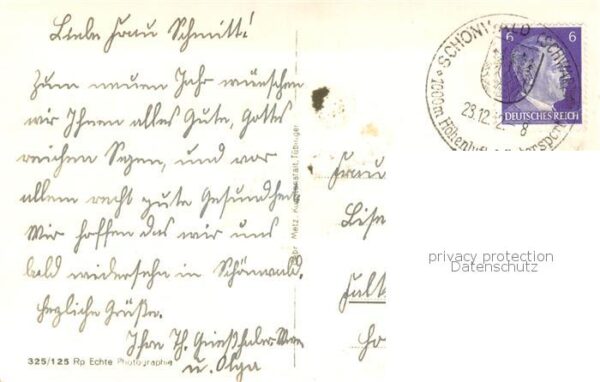 Liebe Frau Schmitt!
Zum neuen Jahr wünschen
wir Ihnen alles Gute, Gottes
reichen Segen, und vor
allem recht gute Gesundheit.
Wir hoffen das wir uns
bald widersehn in Schönwald.
herzliche Grüße.
Ihre Th.
u. Olga
325/125 Rp Echte Photographie
Metz, Kunstanstalt, Tübingen
SCHÖNWALD (SCHWARZW
1000m Höhenluft
23.12.42. - 8
6 6
DEUTSCHES REICH
Frau
Lise
privacy protection
Datenschutz